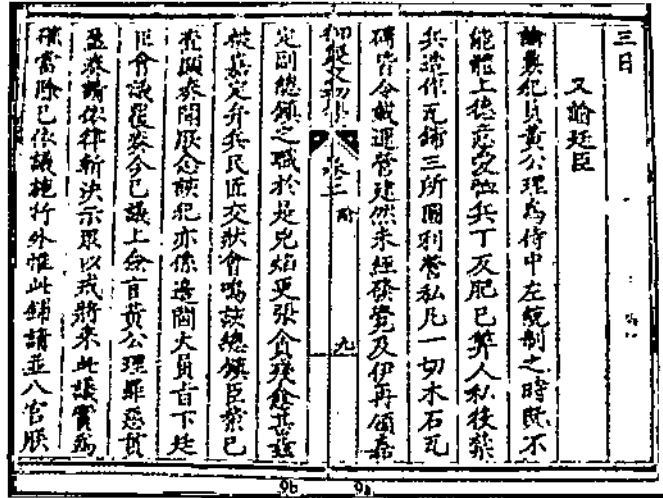 三日
又諭廷臣
諭義犯員黃公理為侍中左統制之時既不
能體上德意愛恤兵丁反肥己弊人私役築
兵造作瓦鋪三所圖利營私凡一切木石瓦
磚皆令載運營建然未經發覺及伊再領嘉
御製文初集 卷二 諭 九
定副總鎮之職於是兇焰更張貪殘愈甚茲
被嘉定弁兵民匠交狀會鳴該總鎮臣察已
覺願奏聞朕念該犯亦係邊閫大員旨下廷
臣會議覆奏今已議上僉言黃公理罪惡貫
盈奏請依律斬決示眾以戒將來此議實為
確當除已依議施行外惟此鋪請並入官朕
9b 9a